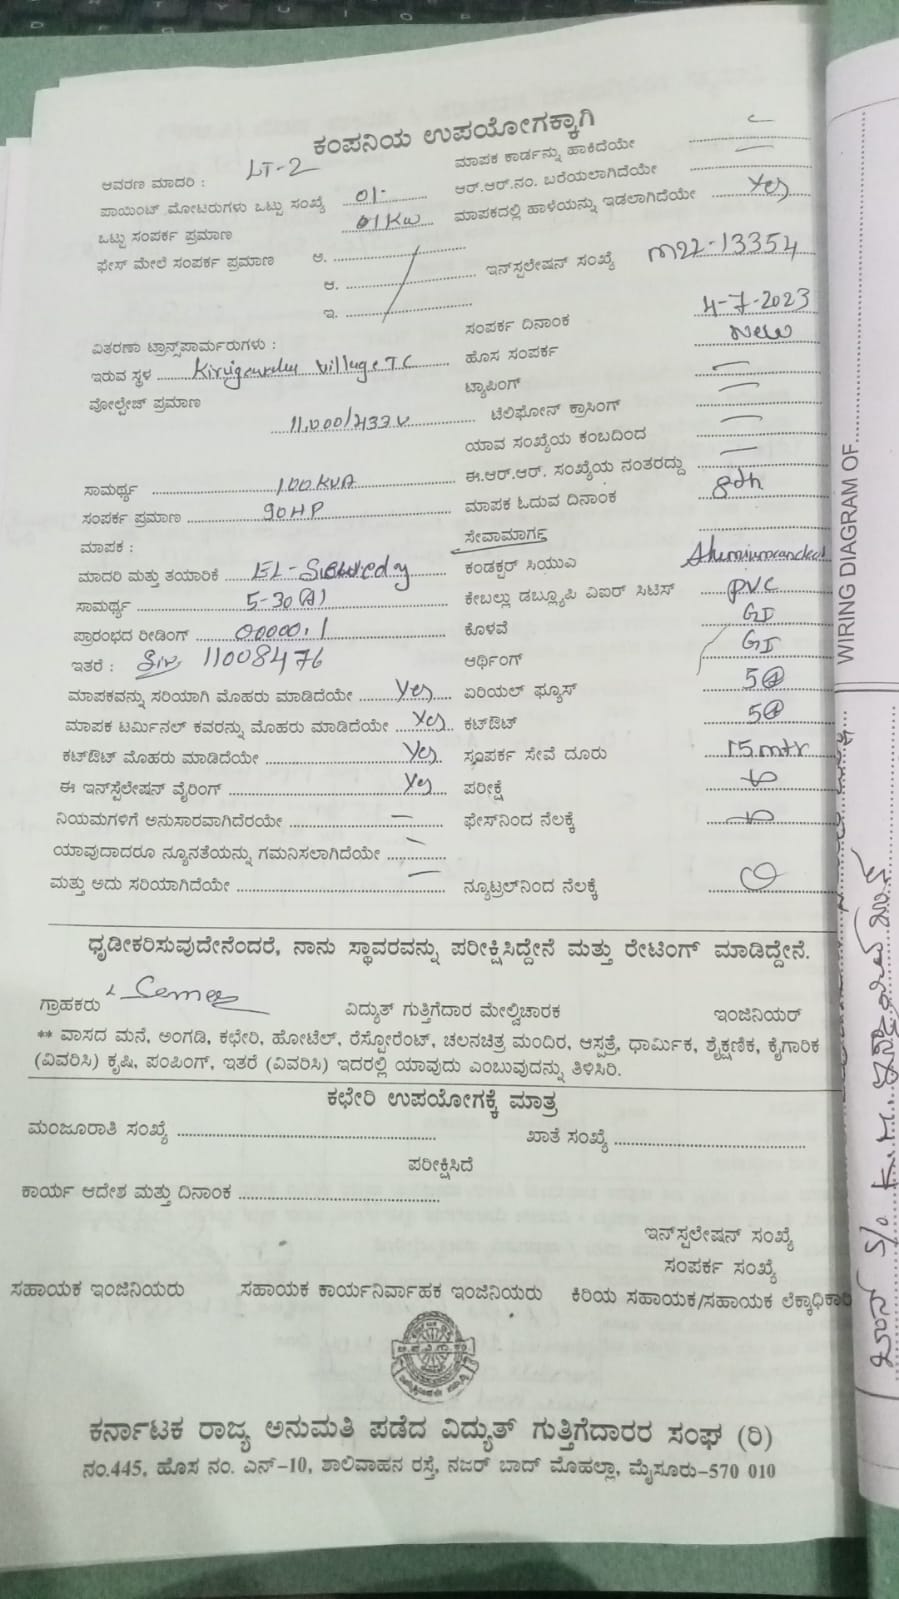 ಕಂಪನಿಯ ಉಪಯೋಗಕ್ಕಾಗಿ
ಆವರಣ ಮಾದರಿ : LT-2 ಮಾಪಕ ಕಾರ್ಡನ್ನು ಹಾಕಿದೆಯೇ
ಪಾಯಿಂಟ್ ಮೋಟರುಗಳು ಒಟ್ಟು ಸಂಖ್ಯೆ 01- ಆರ್.ಆರ್.ನಂ. ಬರೆಯಲಾಗಿದೆಯೇ
ಒಟ್ಟು ಸಂಪರ್ಕ ಪ್ರಮಾಣ 01Kw ಮಾಪಕದಲ್ಲಿ ಹಾಳೆಯನ್ನು ಇಡಲಾಗಿದೆಯೇ Yes
ಫೇಸ್ ಮೇಲೆ ಸಂಪರ್ಕ ಪ್ರಮಾಣ ಅ.
ಆ. ಇನ್‌ಸ್ಪಲೇಷನ್ ಸಂಖ್ಯೆ m22-13354
ಇ.
ಸಂಪರ್ಕ ದಿನಾಂಕ 4-7-2023
ವಿತರಣಾ ಟ್ರಾನ್ಸ್‌ಪಾರ್ಮರುಗಳು :
ಇರುವ ಸ್ಥಳ Village TC ಹೊಸ ಸಂಪರ್ಕ New
ವೋಲ್ಟೇಜ್ ಪ್ರಮಾಣ ಟ್ಯಾಪಿಂಗ್
11,000/433 V ಟೆಲಿಫೋನ್ ಕ್ರಾಸಿಂಗ್
ಯಾವ ಸಂಖ್ಯೆಯ ಕಂಬದಿಂದ
ಸಾಮರ್ಥ್ಯ 100 KVA ಈ.ಆರ್.ಆರ್. ಸಂಖ್ಯೆಯ ನಂತರದ್ದು
ಸಂಪರ್ಕ ಪ್ರಮಾಣ 90HP ಮಾಪಕ ಓದುವ ದಿನಾಂಕ 8th
ಮಾಪಕ : ಸೇವಾಮಾರ್ಗ
ಮಾದರಿ ಮತ್ತು ತಯಾರಿಕೆ ಕಂಡಕ್ಟರ್ ಸಿಯುಎ
ಸಾಮರ್ಥ್ಯ 5-30(A) ಕೇಬಲ್ಲು ಡಬ್ಲ್ಯೂಪಿ ವಿಐಆರ್ ಸಿಟಿಸ್ PVC
ಪ್ರಾರಂಭದ ರೀಡಿಂಗ್ 00000.1 ಕೊಳವೆ GI
ಇತರೆ : 11008476 ಆರ್ಥಿಂಗ್ GI
ಮಾಪಕವನ್ನು ಸರಿಯಾಗಿ ಮೊಹರು ಮಾಡಿದೆಯೇ Yes ಏರಿಯಲ್ ಫ್ಯೂಸ್ 5A
ಮಾಪಕ ಟರ್ಮಿನಲ್ ಕವರನ್ನು ಮೊಹರು ಮಾಡಿದೆಯೇ Yes ಕಟ್‌ಔಟ್ 5A
ಕಟ್‌ಔಟ್ ಮೊಹರು ಮಾಡಿದೆಯೇ Yes ಸಂಪರ್ಕ ಸೇವೆ ದೂರು 15 mtr
ಈ ಇನ್‌ಸ್ಪೆಲೇಷನ್ ವೈರಿಂಗ್ Yes ಪರೀಕ್ಷೆ
ನಿಯಮಗಳಿಗೆ ಅನುಸಾರವಾಗಿದೆರಯೇ ಫೇಸ್‌ನಿಂದ ನೆಲಕ್ಕೆ
ಯಾವುದಾದರೂ ನ್ಯೂನತೆಯನ್ನು ಗಮನಿಸಲಾಗಿದೆಯೇ
ಮತ್ತು ಅದು ಸರಿಯಾಗಿದೆಯೇ ನ್ಯೂಟ್ರಲ್‌ನಿಂದ ನೆಲಕ್ಕೆ
ಧೃಡೀಕರಿಸುವುದೇನೆಂದರೆ, ನಾನು ಸ್ಥಾವರವನ್ನು ಪರೀಕ್ಷಿಸಿದ್ದೇನೆ ಮತ್ತು ರೇಟಿಂಗ್ ಮಾಡಿದ್ದೇನೆ.
ಗ್ರಾಹಕರು ವಿದ್ಯುತ್ ಗುತ್ತಿಗೆದಾರ ಮೇಲ್ವಿಚಾರಕ ಇಂಜಿನಿಯರ್
** ವಾಸದ ಮನೆ, ಅಂಗಡಿ, ಕಛೇರಿ, ಹೋಟೆಲ್, ರೆಸ್ಟೋರೆಂಟ್, ಚಲನಚಿತ್ರ ಮಂದಿರ, ಆಸ್ಪತ್ರೆ, ಧಾರ್ಮಿಕ, ಶೈಕ್ಷಣಿಕ, ಕೈಗಾರಿಕ
(ವಿವರಿಸಿ) ಕೃಷಿ, ಪಂಪಿಂಗ್, ಇತರೆ (ವಿವರಿಸಿ) ಇದರಲ್ಲಿ ಯಾವುದು ಎಂಬುವುದನ್ನು ತಿಳಿಸಿರಿ.
ಕಛೇರಿ ಉಪಯೋಗಕ್ಕೆ ಮಾತ್ರ
ಮಂಜೂರಾತಿ ಸಂಖ್ಯೆ ಖಾತೆ ಸಂಖ್ಯೆ
ಪರೀಕ್ಷಿಸಿದೆ
ಕಾರ್ಯ ಆದೇಶ ಮತ್ತು ದಿನಾಂಕ
ಇನ್‌ಸ್ಪಲೇಷನ್ ಸಂಖ್ಯೆ
ಸಂಪರ್ಕ ಸಂಖ್ಯೆ
ಸಹಾಯಕ ಇಂಜಿನಿಯರು ಸಹಾಯಕ ಕಾರ್ಯನಿರ್ವಾಹಕ ಇಂಜಿನಿಯರು ಕಿರಿಯ ಸಹಾಯಕ/ಸಹಾಯಕ ಲೆಕ್ಕಾಧಿಕಾರಿ
ಕರ್ನಾಟಕ ರಾಜ್ಯ ಅನುಮತಿ ಪಡೆದ ವಿದ್ಯುತ್ ಗುತ್ತಿಗೆದಾರರ ಸಂಘ (ರಿ)
ನಂ.445, ಹೊಸ ನಂ. ಎನ್-10, ಶಾಲಿವಾಹನ ರಸ್ತೆ, ನಜರ್ ಬಾದ್ ಮೊಹಲ್ಲಾ, ಮೈಸೂರು-570 010
WIRING DIAGRAM OF